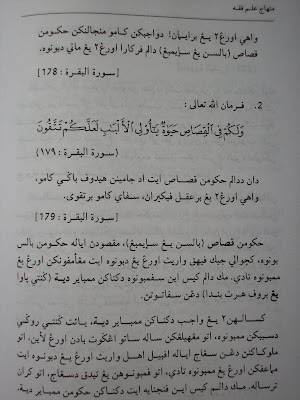 منهاج علم فقه
واهي اورڠ٢ يڠ برايمان! دواجبكن كامو منجالنكن حكومن
قصاص (بالسن يڠ سإيمبڠ) دالم ڤركارا اورڠ٢ يڠ ماتي دبونوه.
[سورة البقرة : 178]
2. فرمان الله تعالى :
وَلَكُمْ فِي ٱلْقِصَاصِ حَيَوٰةٌ يَٰٓأُو۟لِي ٱلْأَلْبَٰبِ لَعَلَّكُمْ تَتَّقُونَ
(سورة البقرة : ١٧٩)
دان ددالم حكومن قصاص ايت اد جامينن هيدوڤ باݢي كامو،
واهي اورڠ٢ يڠ برعقل فيكيران، سڤاي كامو برتقوى.
[سورة البقرة : 179]
حكومن قصاص (بالسن يڠ سإيمبڠ)، مقصودن اياله حكومن بالس
بونوه، كچوالي جيك ڤيهق واريث اورڠ يڠ دبونوه ايت مڠأمڤونكن اورڠ يڠ
ممبونوه تادي. مك دالم كيس اين سڤمبونوه دكناكن ممباير دية، (ݢنتي ياوا
يڠ بروڤ هرت بندا) دڠن سڤاتوتن.
كسالهن٢ يڠ واجب دكناكن ممباير دية، يائت ݢنتي روݢي
دسببكن ممبونوه، اتو مڠهيلڠكن ساله ساتو اڠݢوت بادن اورڠ لاين، اتو
ملوكاكنن دڠن سڠاج اياله اڤبيل اهل واريث اورڠ يڠ دبونوه ايت
مماعفكن اورڠ يڠ ممبونوه تادي، اتو ڤمبونوهن يڠ تيدق دسڠاج، اتو كران
ترساله. مك دالم كيس اين ڤنجنايه ايت دكناكن حكومن ممباير دية.